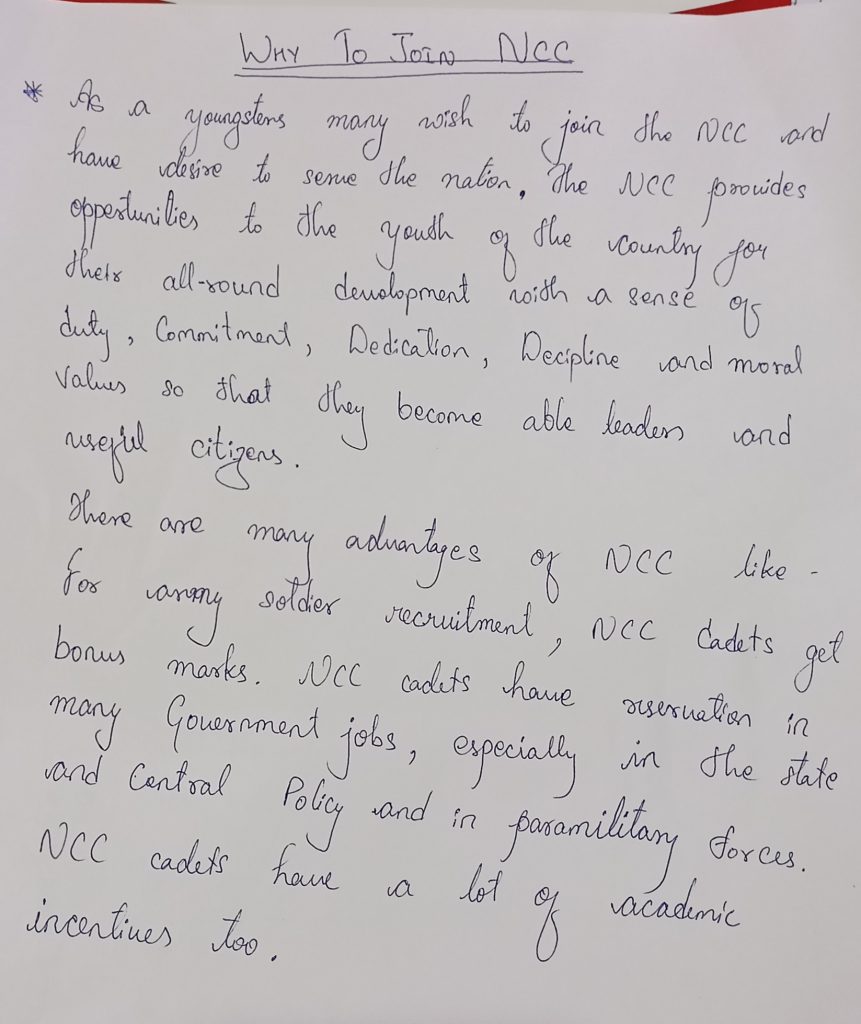 WHY TO JOIN NCC
* As a youngsters many wish to join the NCC and
have desire to serve the nation, The NCC provides
oppertunities to the youth of the country for
their all-round development with a sense of
duty, Commitment, Dedication, Decipline and moral
Values so that they become able leaders and
useful citizens.
There are many advantages of NCC like -
For army soldier recruitment, NCC Cadets get
bonus marks. NCC cadets have reservation in
many Government jobs, especially in the state
and Central Policy and in paramilitary forces.
NCC cadets have a lot of academic
incentives too.